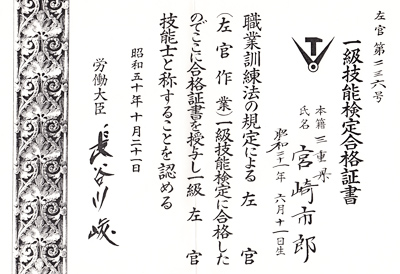 左官第二三六号
一級技能検定合格証書
本籍 三重県
氏名 宮崎市郎
昭和二十一年六月十一日生
職業訓練法の規定による 左官
(左官作業)一級技能検定に合格した
のでここに合格証書を授与し一級 左官
技能士と称することを認める
昭和五十年十月二十一日
労働大臣 長谷川峻